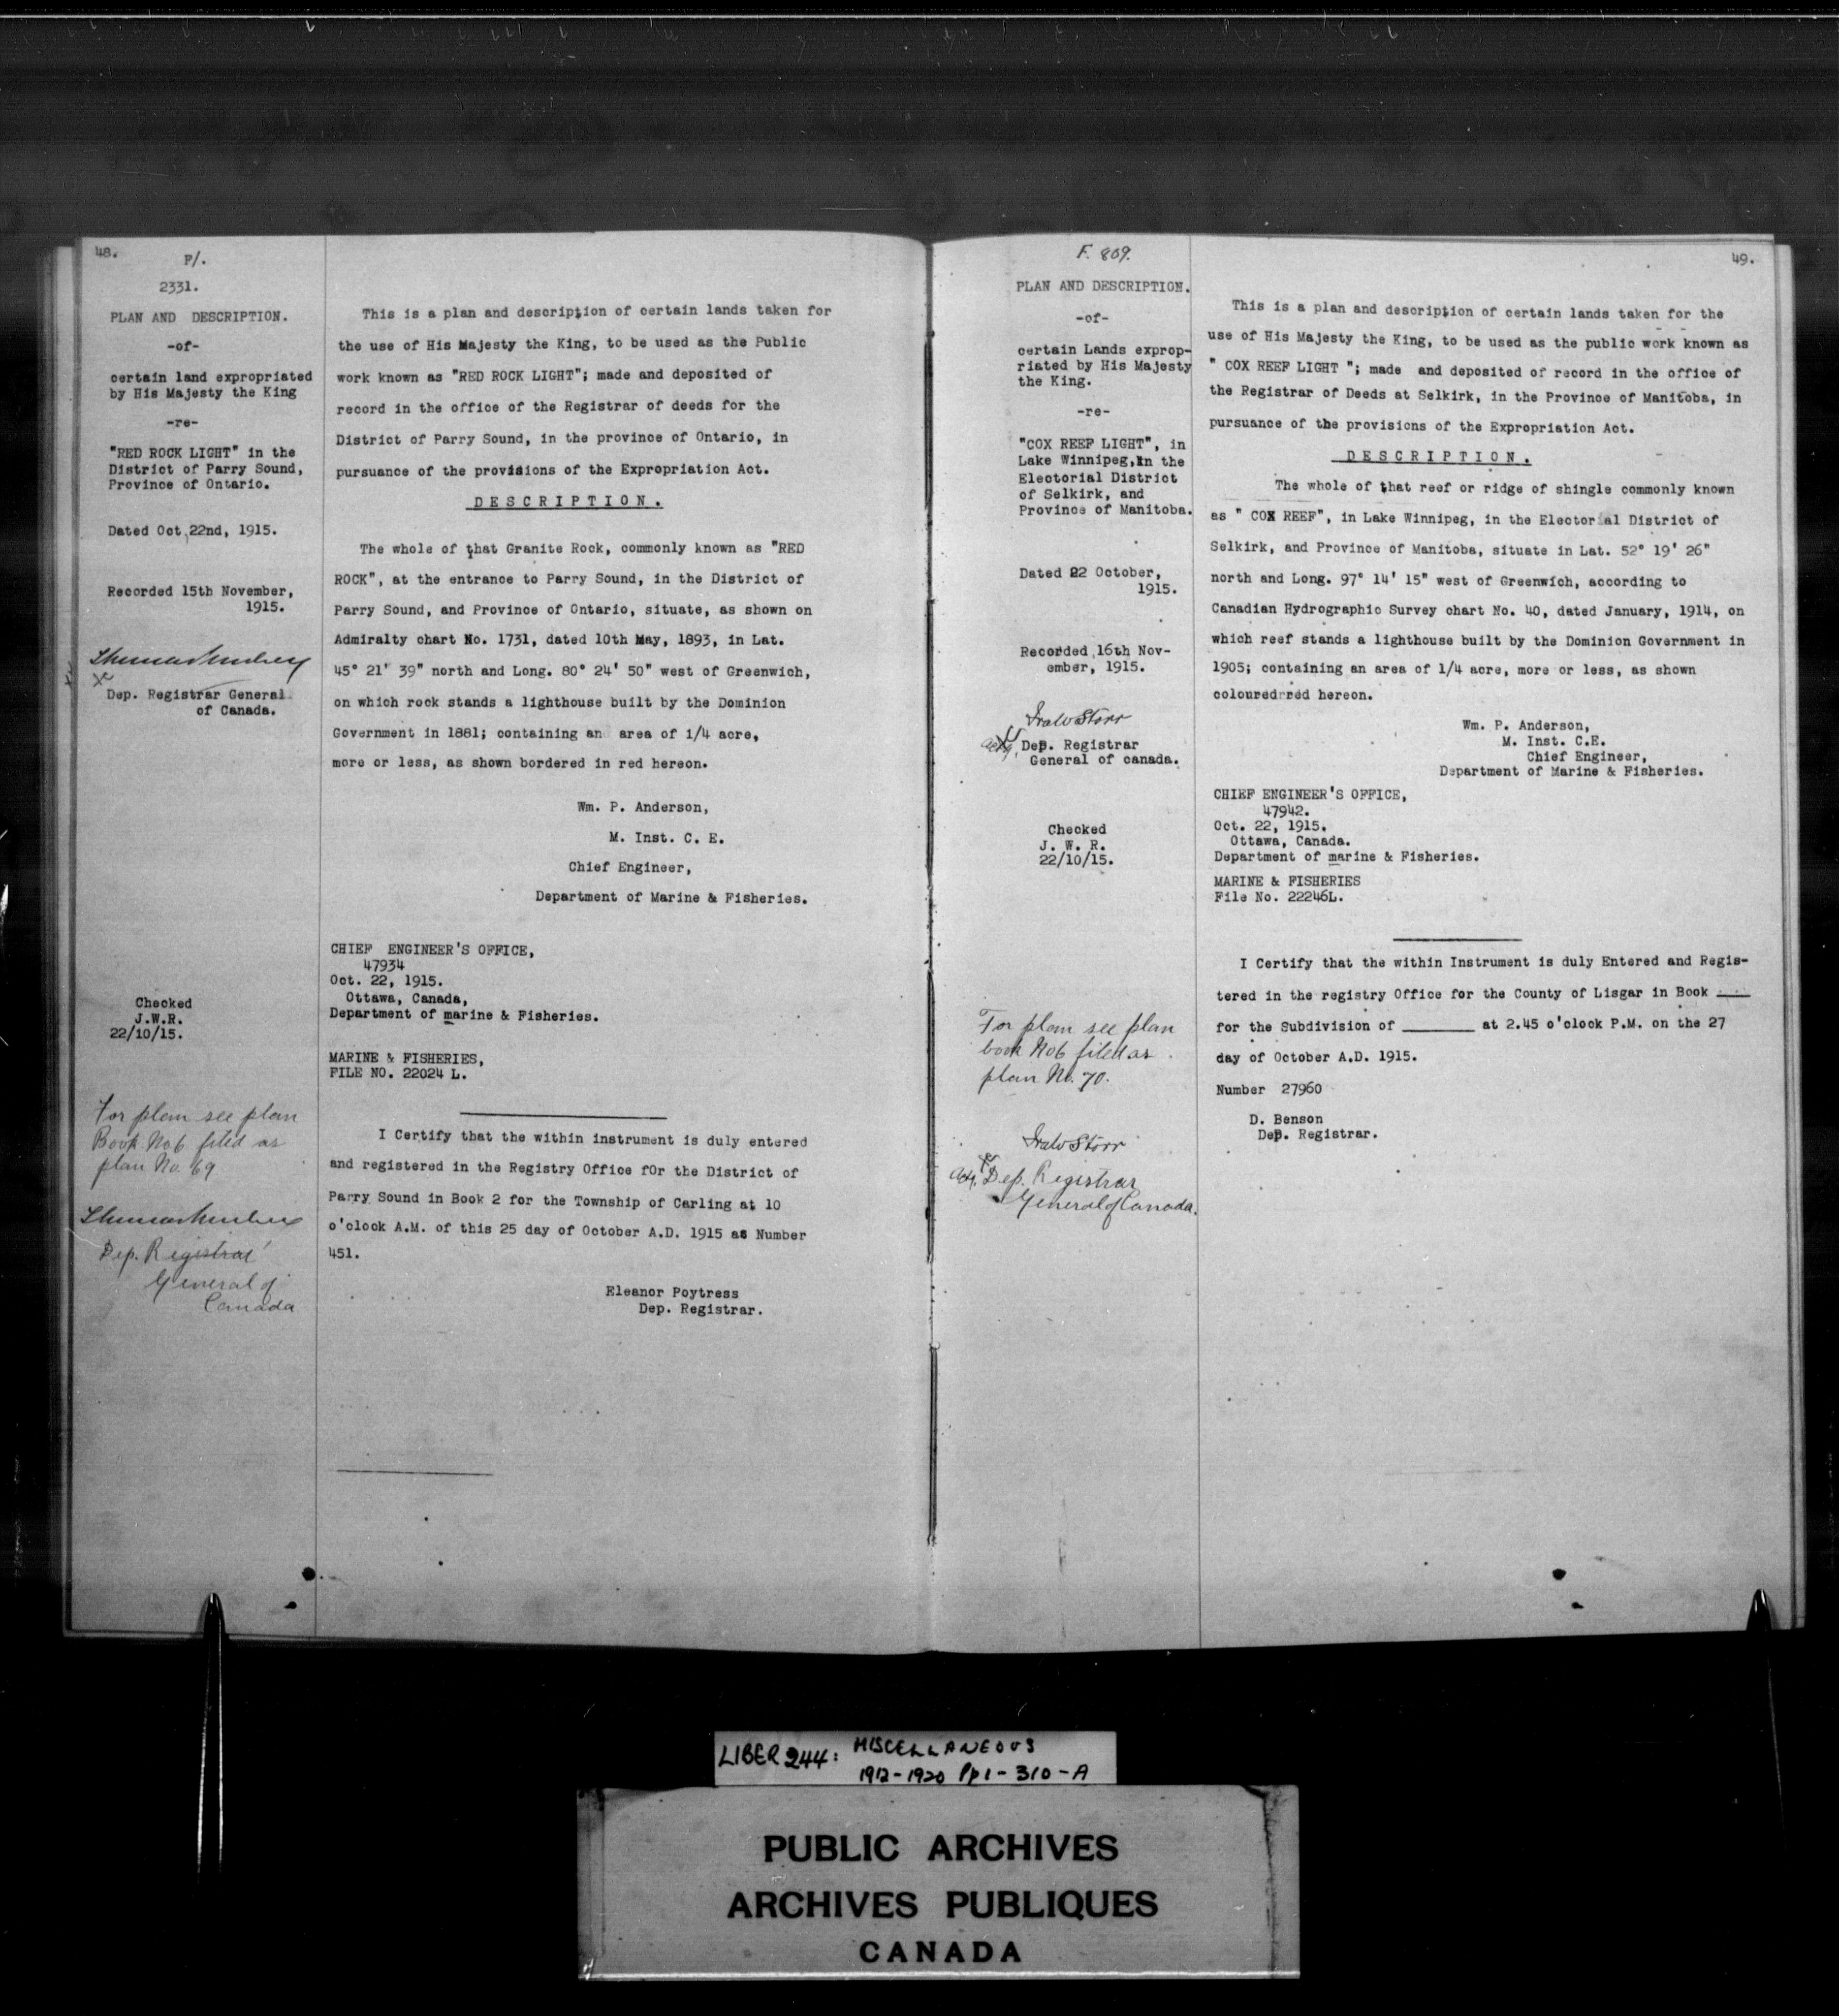 48.
F/.
2331.
PLAN AND DESCRIPTION.
-of-
certain land expropriated
by His Majesty the King
-re-
"RED ROCK LIGHT" in the
District of Parry Sound,
Province of Ontario.
Dated Oct 22nd, 1915.
Recorded 15th November,
1915.
Dep. Registrar General
of Canada.
Checked
J.W.R.
22/10/15.
For plan see plan
Book No 6 filed as
plan No. 69
Dep. Registrar
General of
Canada
This is a plan and description of certain lands taken for
the use of His Majesty the King, to be used as the Public
work known as "RED ROCK LIGHT"; made and deposited of
record in the office of the Registrar of deeds for the
District of Parry Sound, in the province of Ontario, in
pursuance of the provisions of the Expropriation Act.
DESCRIPTION.
The whole of that Granite Rock, commonly known as "RED
ROCK", at the entrance to Parry Sound, in the District of
Parry Sound, and Province of Ontario, situate, as shown on
Admiralty chart No. 1731, dated 10th May, 1893, in Lat.
45° 21' 39" north and Long. 80° 24' 50" west of Greenwich,
on which rock stands a lighthouse built by the Dominion
Government in 1881; containing an area of 1/4 acre,
more or less, as shown bordered in red hereon.
Wm. P. Anderson,
M. Inst. C. E.
Chief Engineer,
Department of Marine & Fisheries.
CHIEF ENGINEER'S OFFICE,
47934
Oct. 22, 1915.
Ottawa, Canada,
Department of marine & Fisheries.
MARINE & FISHERIES,
FILE NO. 22024 L.
I Certify that the within instrument is duly entered
and registered in the Registry Office fOr the District of
Parry Sound in Book 2 for the Township of Carling at 10
o'clock A.M. of this 25 day of October A.D. 1915 as Number
451.
Eleanor Poytress
Dep. Registrar.
F. 809.
49.
PLAN AND DESCRIPTION.
-of-
certain Lands exprop-
riated by His Majesty
the King.
-re-
"COX REEF LIGHT", in
Lake Winnipeg,in the
Electorial District
of Selkirk, and
Province of Manitoba.
Dated 22 October,
1915.
Recorded 16th Nov-
ember, 1915.
Actg. Dep. Registrar
General of canada.
Checked
J. W. R.
22/10/15.
For plan see plan
book No 6 filed as
plan No. 70.
Actg. Dep. Registrar
General of Canada.
This is a plan and description of certain lands taken for the
use of His Majesty the King, to be used as the public work known as
" COX REEF LIGHT "; made and deposited of record in the office of
the Registrar of Deeds at Selkirk, in the Province of Manitoba, in
pursuance of the provisions of the Expropriation Act.
DESCRIPTION.
The whole of that reef or ridge of shingle commonly known
as " COX REEF", in Lake Winnipeg, in the Elector al District of
Selkirk, and Province of Manitoba, situate in Lat. 52° 19' 26"
north and Long. 97° 14' 15" west of Greenwich, according to
Canadian Hydrographic Survey chart No. 40, dated January, 1914, on
which reef stands a lighthouse built by the Dominion Government in
1905; containing an area of 1/4 acre, more or less, as shown
coloured red hereon.
Wm. P. Anderson,
M. Inst. C.E.
Chief Engineer,
Department of Marine & Fisheries.
CHIEF ENGINEER'S OFFICE,
47942.
Oct. 22, 1915.
Ottawa, Canada.
Department of marine & Fisheries.
MARINE & FISHERIES
File No. 22246L.
I Certify that the within Instrument is duly Entered and Regis-
tered in the registry Office for the County of Lisgar in Book ____
for the Subdivision of ________ at 2.45 o'clock P.M. on the 27
day of October A.D. 1915.
Number 27960
D. Benson
Dep. Registrar.
LIBER 244: MISCELLANEOUS
1912-1920 Pp 1-310-A
PUBLIC ARCHIVES
ARCHIVES PUBLIQUES
CANADA